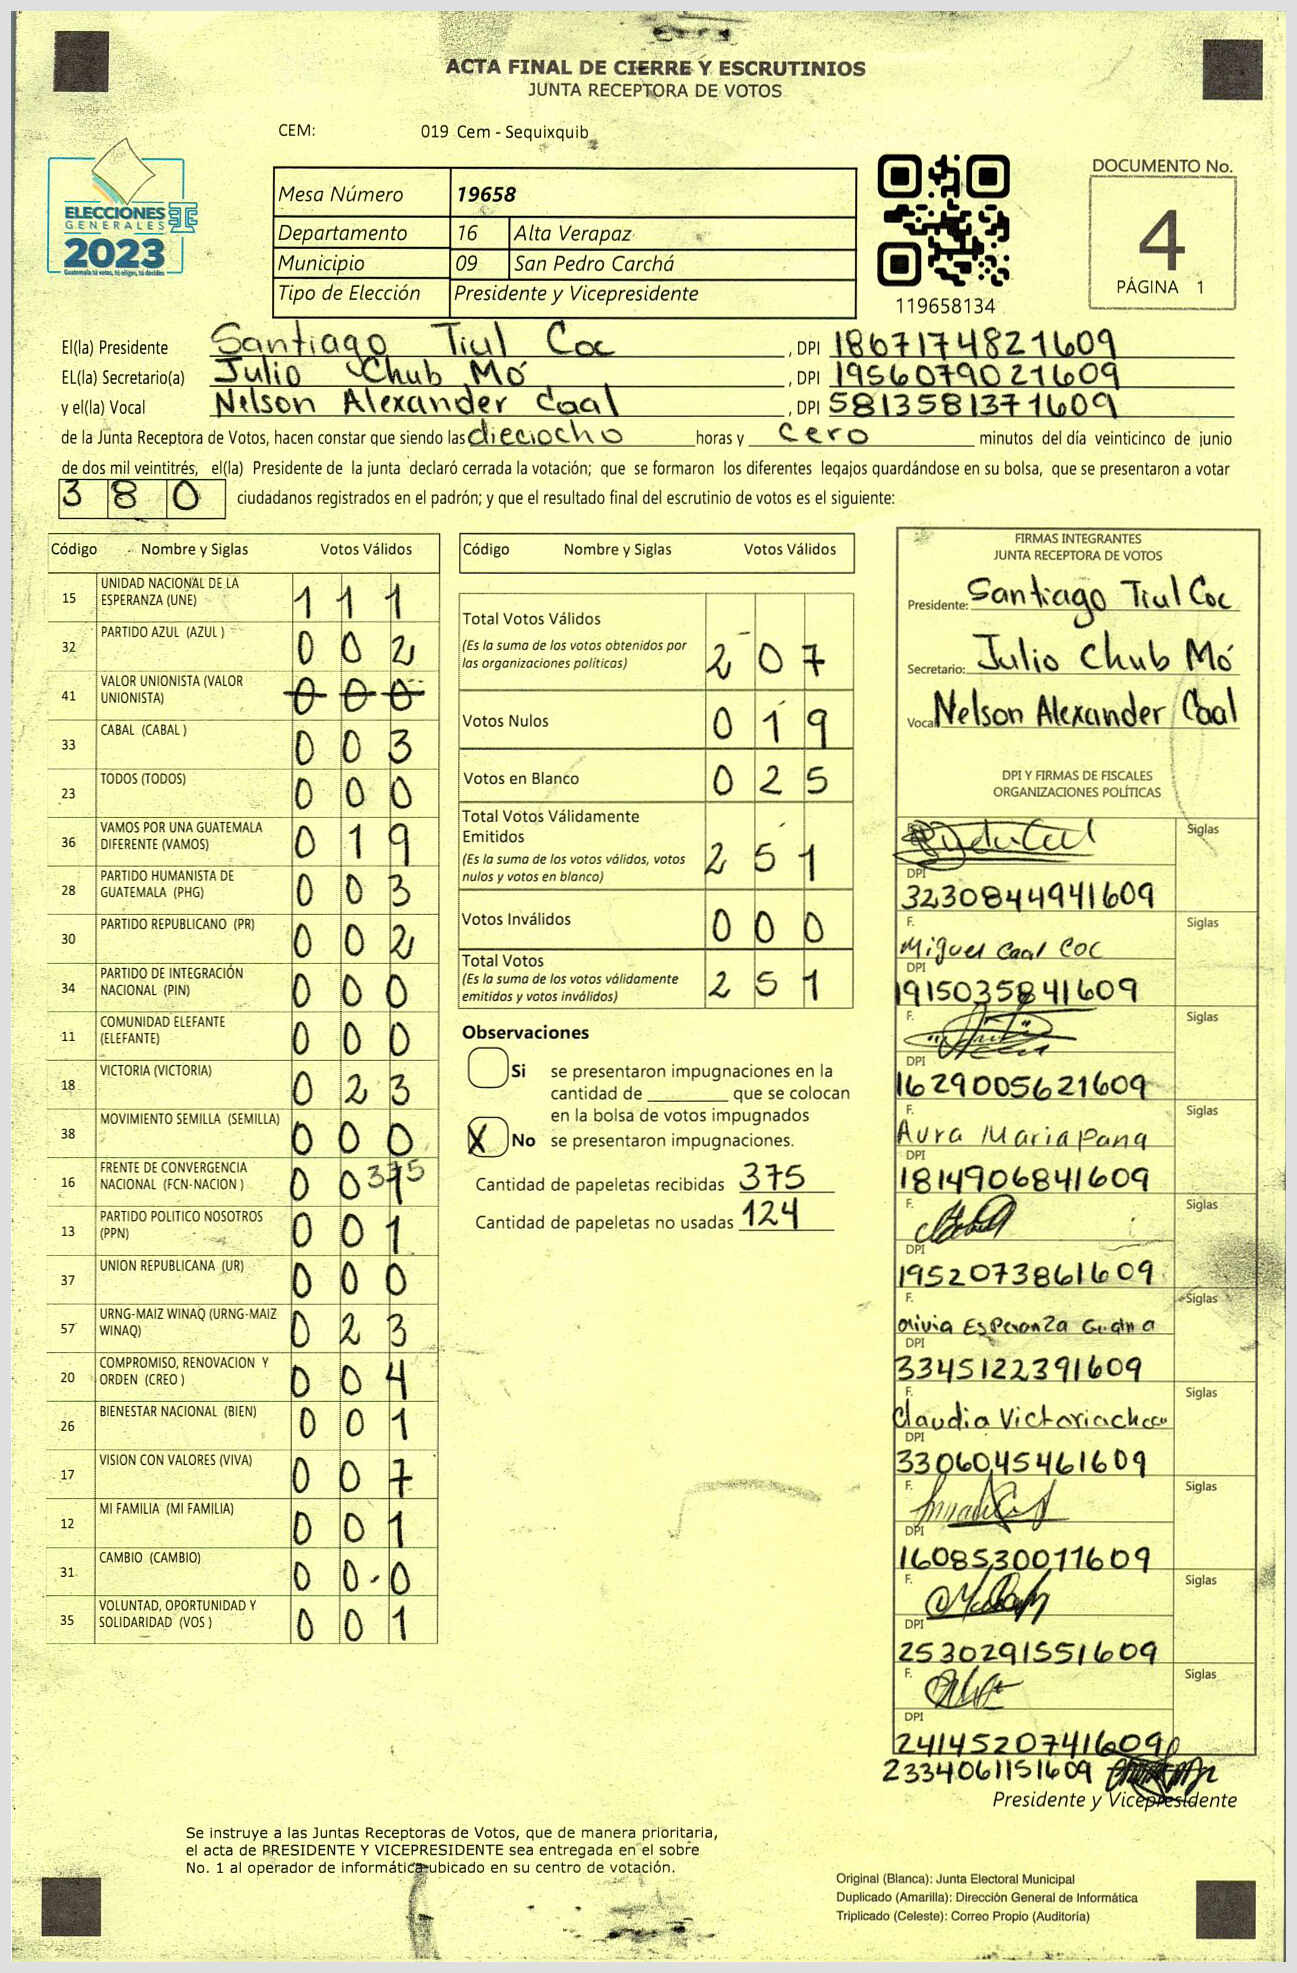 ACTA FINAL DE CIERRE Y ESCRUTINIOS
JUNTA RECEPTORA DE VOTOS
CEM: 019 Cem - Sequixquib
ELECCIONES
GENERALES
2023
Guatemala tú votas, tú eliges, tú decides
Mesa Número 19658
Departamento 16 Alta Verapaz
Municipio 09 San Pedro Carchá
Tipo de Elección Presidente y Vicepresidente
119658134
DOCUMENTO No.
4
PÁGINA 1
El(la) Presidente Santiago Tiul Coc, DPI 1867174821609
EL(la) Secretario(a) Julio Chub Mó, DPI 1956079021609
y el(la) Vocal Nelson Alexander Caal, DPI 5813581371609
de la Junta Receptora de Votos, hacen constar que siendo las dieciocho horas y cero minutos del día veinticinco de junio
de dos mil veintitrés, el(la) Presidente de la junta declaró cerrada la votación; que se formaron los diferentes legajos guardándose en su bolsa, que se presentaron a votar
380 ciudadanos registrados en el padrón; y que el resultado final del escrutinio de votos es el siguiente:
Código Nombre y Siglas Votos Válidos
15 UNIDAD NACIONAL DE LA ESPERANZA (UNE) 1 1 1
32 PARTIDO AZUL (AZUL ) 0 0 2
41 VALOR UNIONISTA (VALOR UNIONISTA) 0 0 0
33 CABAL (CABAL ) 0 0 3
23 TODOS (TODOS) 0 0 0
36 VAMOS POR UNA GUATEMALA DIFERENTE (VAMOS) 0 1 9
28 PARTIDO HUMANISTA DE GUATEMALA (PHG) 0 0 3
30 PARTIDO REPUBLICANO (PR) 0 0 2
34 PARTIDO DE INTEGRACIÓN NACIONAL (PIN) 0 0 0
11 COMUNIDAD ELEFANTE (ELEFANTE) 0 0 0
18 VICTORIA (VICTORIA) 0 2 3
38 MOVIMIENTO SEMILLA (SEMILLA) 0 0 0
16 FRENTE DE CONVERGENCIA NACIONAL (FCN-NACION ) 0 0 375
13 PARTIDO POLITICO NOSOTROS (PPN) 0 0 1
37 UNION REPUBLICANA (UR) 0 0 0
57 URNG-MAIZ WINAQ (URNG-MAIZ WINAQ) 0 2 3
20 COMPROMISO, RENOVACION Y ORDEN (CREO ) 0 0 4
26 BIENESTAR NACIONAL (BIEN) 0 0 1
17 VISION CON VALORES (VIVA) 0 0 7
12 MI FAMILIA (MI FAMILIA) 0 0 1
31 CAMBIO (CAMBIO) 0 0 0
35 VOLUNTAD, OPORTUNIDAD Y SOLIDARIDAD (VOS ) 0 0 1
Código Nombre y Siglas Votos Válidos
Total Votos Válidos 2 0 7
(Es la suma de los votos obtenidos por
las organizaciones políticas)
Votos Nulos 0 1 9
Votos en Blanco 0 2 5
Total Votos Válidamente
Emitidos 2 5 1
(Es la suma de los votos válidos, votos
nulos y votos en blanco)
Votos Inválidos 0 0 0
Total Votos 2 5 1
(Es la suma de los votos válidamente
emitidos y votos inválidos)
Observaciones
Si se presentaron impugnaciones en la
cantidad de ________ que se colocan
en la bolsa de votos impugnados
X No se presentaron impugnaciones.
Cantidad de papeletas recibidas 375
Cantidad de papeletas no usadas 124
FIRMAS INTEGRANTES
JUNTA RECEPTORA DE VOTOS
Presidente: Santiago Tiul Coc
Secretario: Julio Chub Mó
Vocal Nelson Alexander Caal
DPI Y FIRMAS DE FISCALES
ORGANIZACIONES POLÍTICAS
Siglas
DPI
3230844941609
F. Siglas
Miguel Caal Coc
DPI
1915035841609
F. Siglas
DPI
1629005621609
F. Siglas
Aura Maria Pana
DPI
1814906841609
F. Siglas
DPI
1952073861609
F. Siglas
Olivia Esperanza
DPI
3345122391609
F. Siglas
Claudia Victoria
DPI
3306045461609
F. Siglas
DPI
1608530011609
F. Siglas
DPI
2530291551609
F. Siglas
DPI
2414520741609
2334061151609
Presidente y Vicepresidente
Se instruye a las Juntas Receptoras de Votos, que de manera prioritaria,
el acta de PRESIDENTE Y VICEPRESIDENTE sea entregada en el sobre
No. 1 al operador de informática ubicado en su centro de votación.
Original (Blanca): Junta Electoral Municipal
Duplicado (Amarilla): Dirección General de Informática
Triplicado (Celeste): Correo Propio (Auditoría)